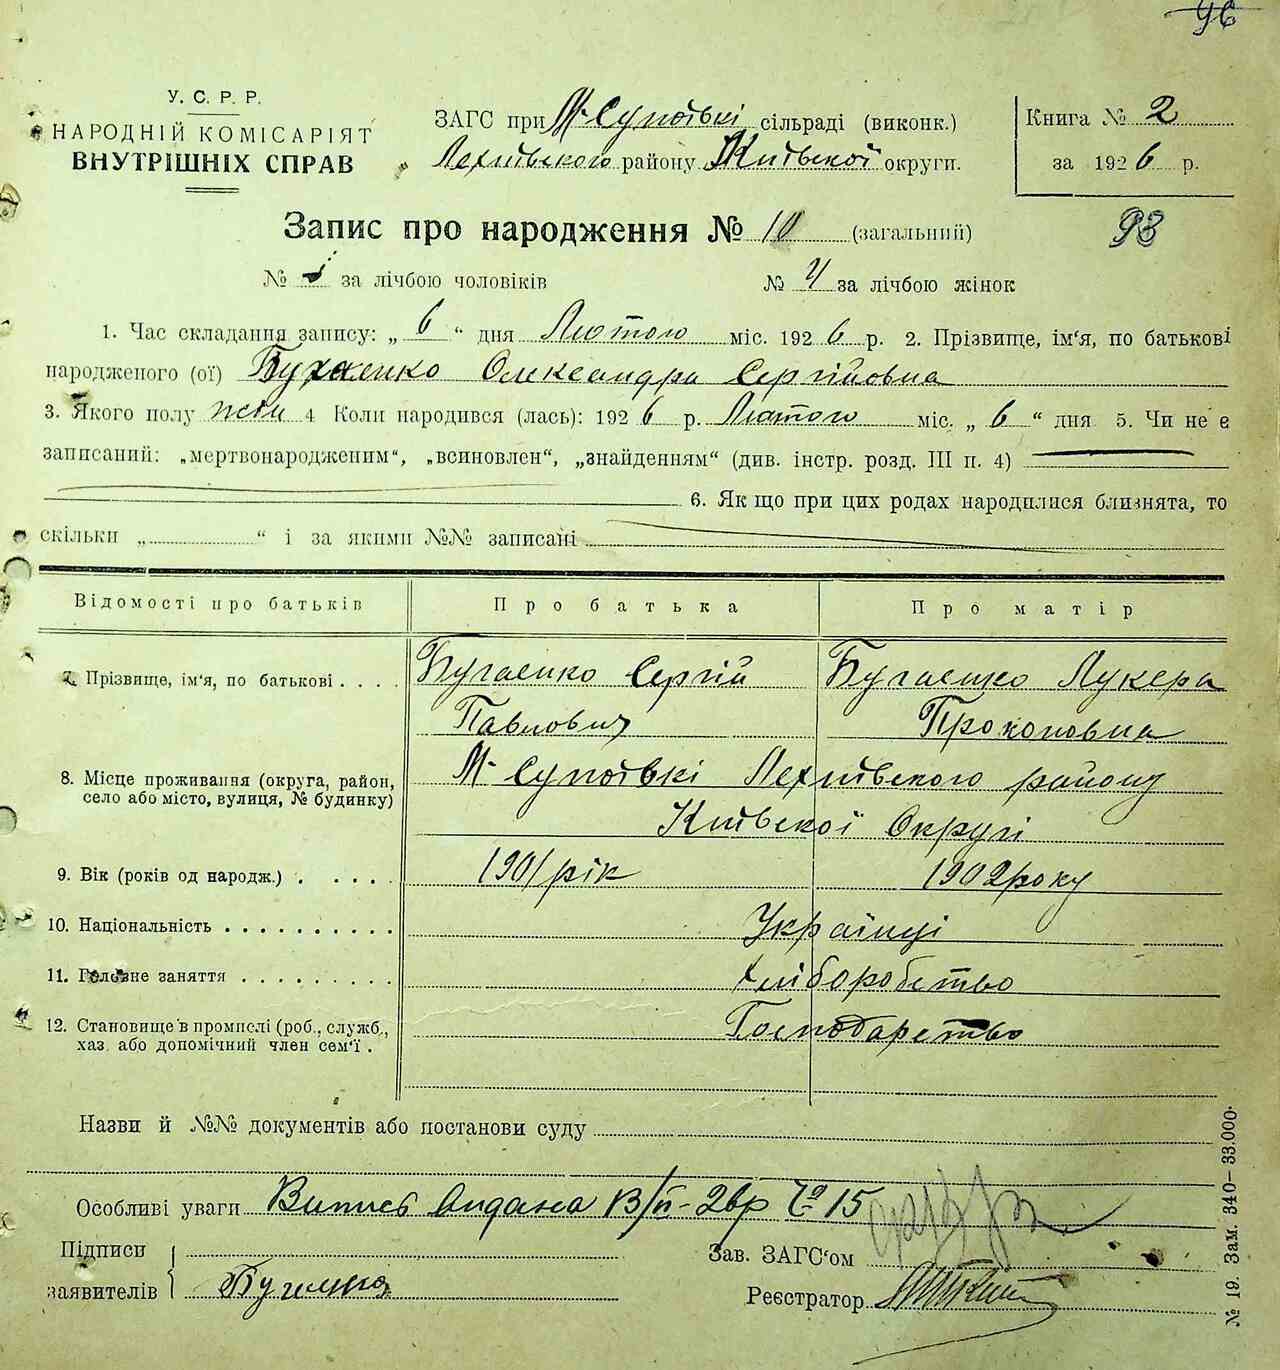 96
У. С. Р. Р.
НАРОДНІЙ КОМІСАРІЯТ
ВНУТРІШНІХ СПРАВ
ЗАГС при М-Супоївкі сільраді (виконк.)
Яготівського району Київскої округи.
Книга № 2
за 1926 р.
Запис про народження № 10 (загальний)
98
№ за лічбою чоловіків
№ 4 за лічбою жінок
1. Час складання запису: „6“ дня Лютого міс. 1926 р. 2. Прізвище, ім'я, по батькові
народженого (ої) Бугаенко Олександра Сергійовна
3. Якого полу жін 4 Коли народився (лась): 1926 р. Лютого міс. „6“ дня 5. Чи не є
записаний: „мертвонародженим“, „всиновлен“, „знайденням“ (див. інстр. розд. III п. 4)
6. Як що при цих родах народилися близнята, то
скільки „ “ і за якими №№ записані
Відомості про батьків Про батька Про матір
7. Прізвище, ім'я, по батькові . . . . Бугаенко Сергій Бугаенко Лукера
Павлович Прокоповна
8. Місце проживання (округа, район,
село або місто, вулиця, № будинку)
М-Супоївкі району
Київскої Округі
9. Вік (років од народж.) . . . . . 1901 рік 1902 року
10. Національність . . . . . . . . . . Українці
11. Головне заняття . . . . . . . . . Хліборобство
12. Становище в промислі (роб., служб.,
хаз. або допомічний член сем'ї .
Господарство
Назви й №№ документів або постанови суду
Особливі уваги Випись видана В/ІІ-28р № 15
Підписи
заявителів
Бугаенко
Зав. ЗАГС'ом
Реєстратор
№ 19. Зам. 340–33.000.